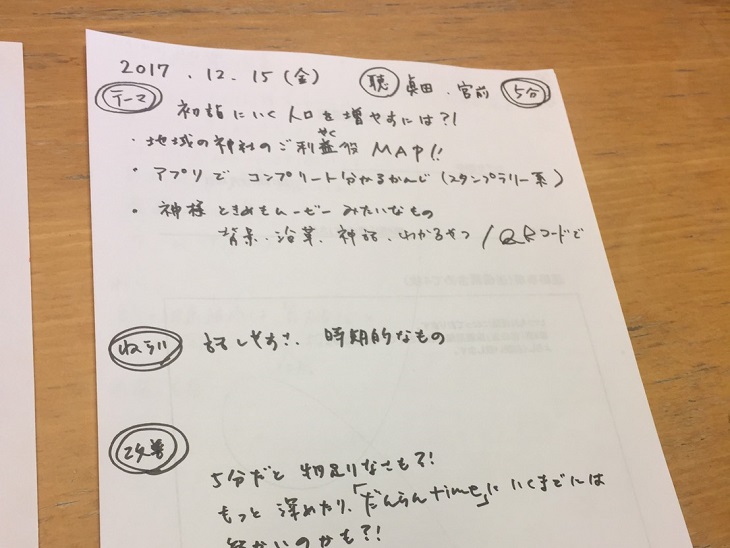 2017.12.15(金) 聴 眞田.宮前 5分
テーマ 初詣にいく人口を増やすには?!
・地域の神社のご利益役MAP!!
やく
・アプリで コンプリート分かるかんじ(スタンプラリー系)
・神様ときめきムービーみたいなもの
背景、沿革、神話、わかるやつ/QRコードで
ねらい 話しやすさ、時期的なもの
改善
5分だと物足りなさも?!
もっと深めたり、「だんらんtime」にいくまでには